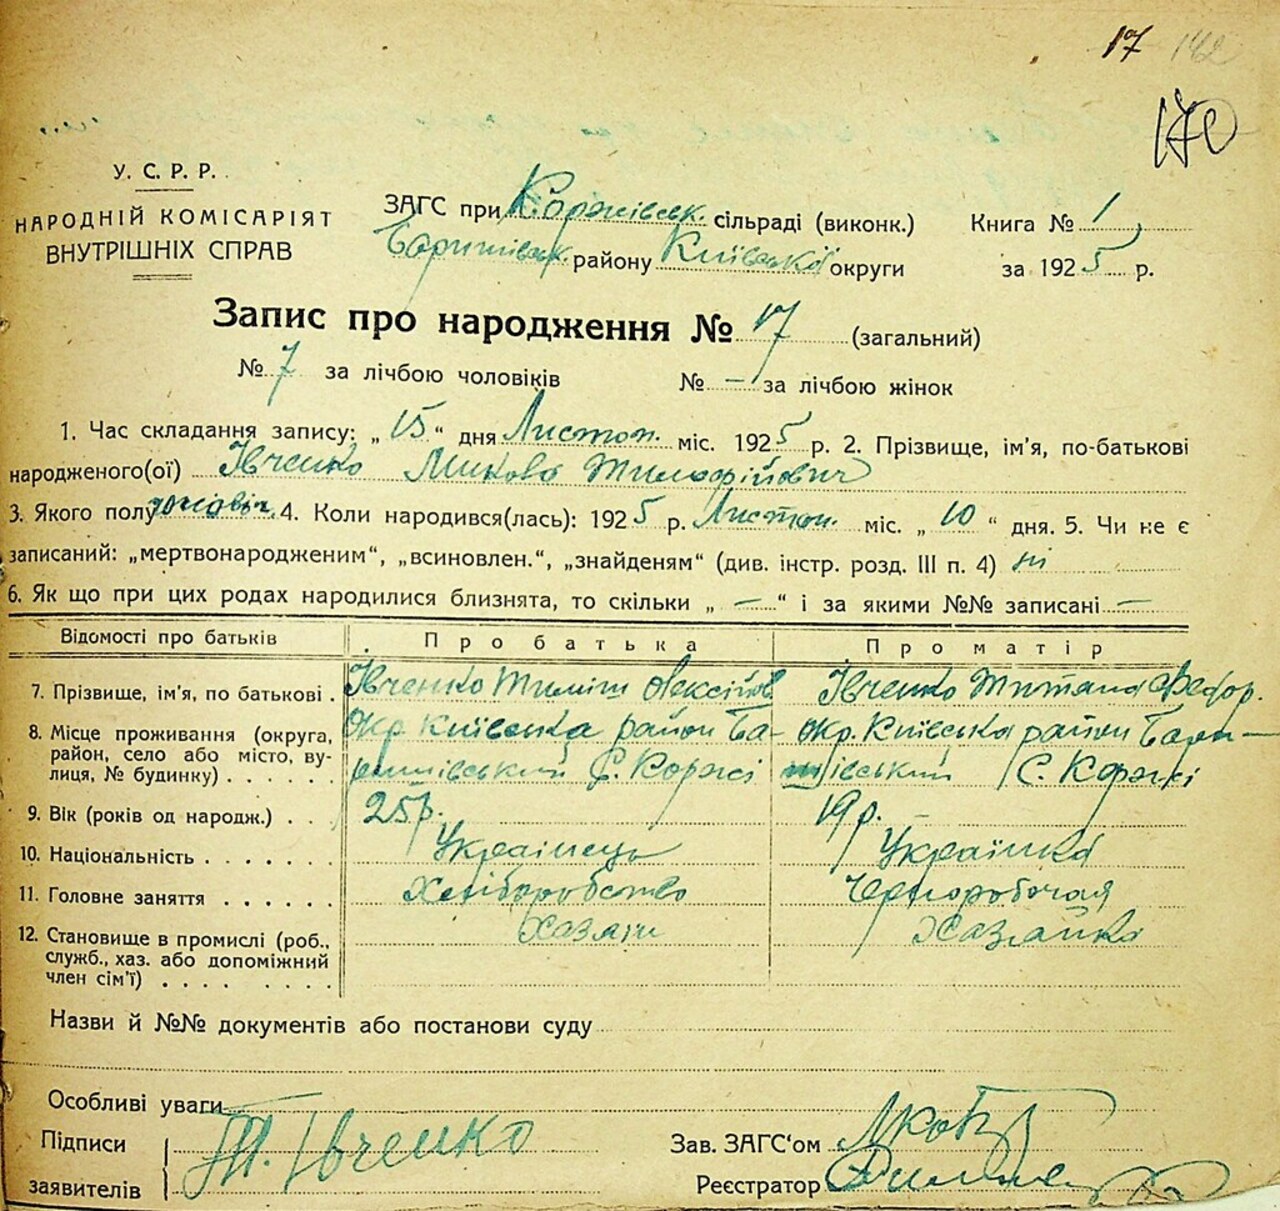 17 142
170
У. С. Р. Р.
НАРОДНІЙ КОМІСАРІЯТ
ВНУТРІШНІХ СПРАВ
ЗАГС при Коржівськ. сільраді (виконк.)
Баришівськ. району Київської округи
Книга № 1
за 1925 р.
Запис про народження № 17 (загальний)
№ 7 за лічбою чоловіків № — за лічбою жінок
1. Час складання запису: „15“ дня Листоп. міс. 1925 р. 2. Прізвище, ім'я, по-батькові
народженого(ої) Івченко Микола Тимофійович
3. Якого полу чоловіч. 4. Коли народився(лась): 1925 р. Листоп. міс. „10“ дня. 5. Чи не є
записаний: „мертвонародженим“, „всиновлен.“, „знайденям“ (див. інстр. розд. III п. 4) ні
6. Як що при цих родах народилися близнята, то скільки „—“ і за якими №№ записані —
Відомості про батьків Про батька Про матір
7. Прізвище, ім'я, по батькові . Івченко Тиміш Олексійов Івченко Титяна Федор.
8. Місце проживання (округа, район, село або місто, вулиця, № будинку) . . . . . Окр. Київська район Ба-
ришівський С. Коржі
Окр. Київська район Бари-
шівський С. Коржі
9. Вік (років од народж.) . . . 25 р. 19 р.
10. Національність . . . . . . . Українець Українка
11. Головне заняття . . . . . . Хліборобство Черноробочая
12. Становище в промислі (роб., служб., хаз. або допоміжний член сім'ї) . . . . . . . . Хазяїн Хазяйка
Назви й №№ документів або постанови суду
Особливі уваги
Підписи
заявителів
Т. Івченко
Зав. ЗАГС'ом
Реєстратор